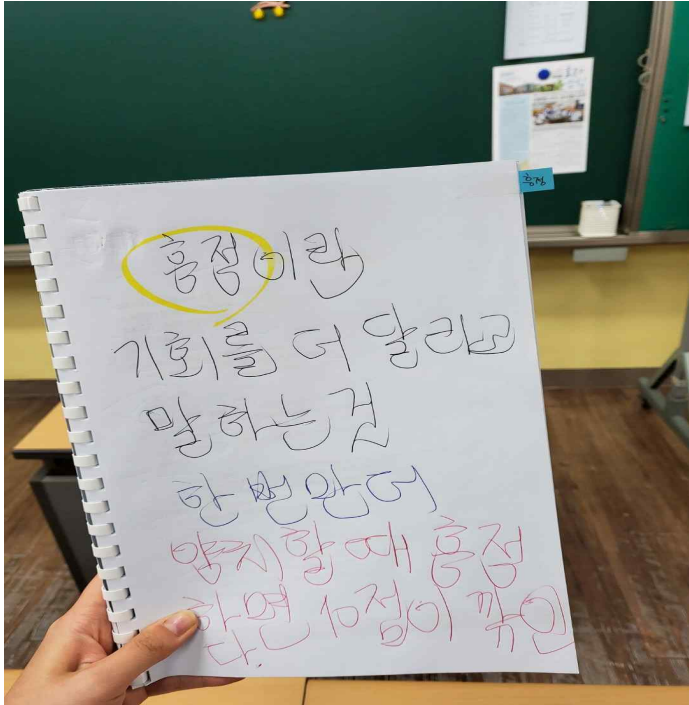 흥정
흥정이란
기회를 더 달라고
말하는것
한번만더
양치할때 흥정
하면 10점이 깎인
다.